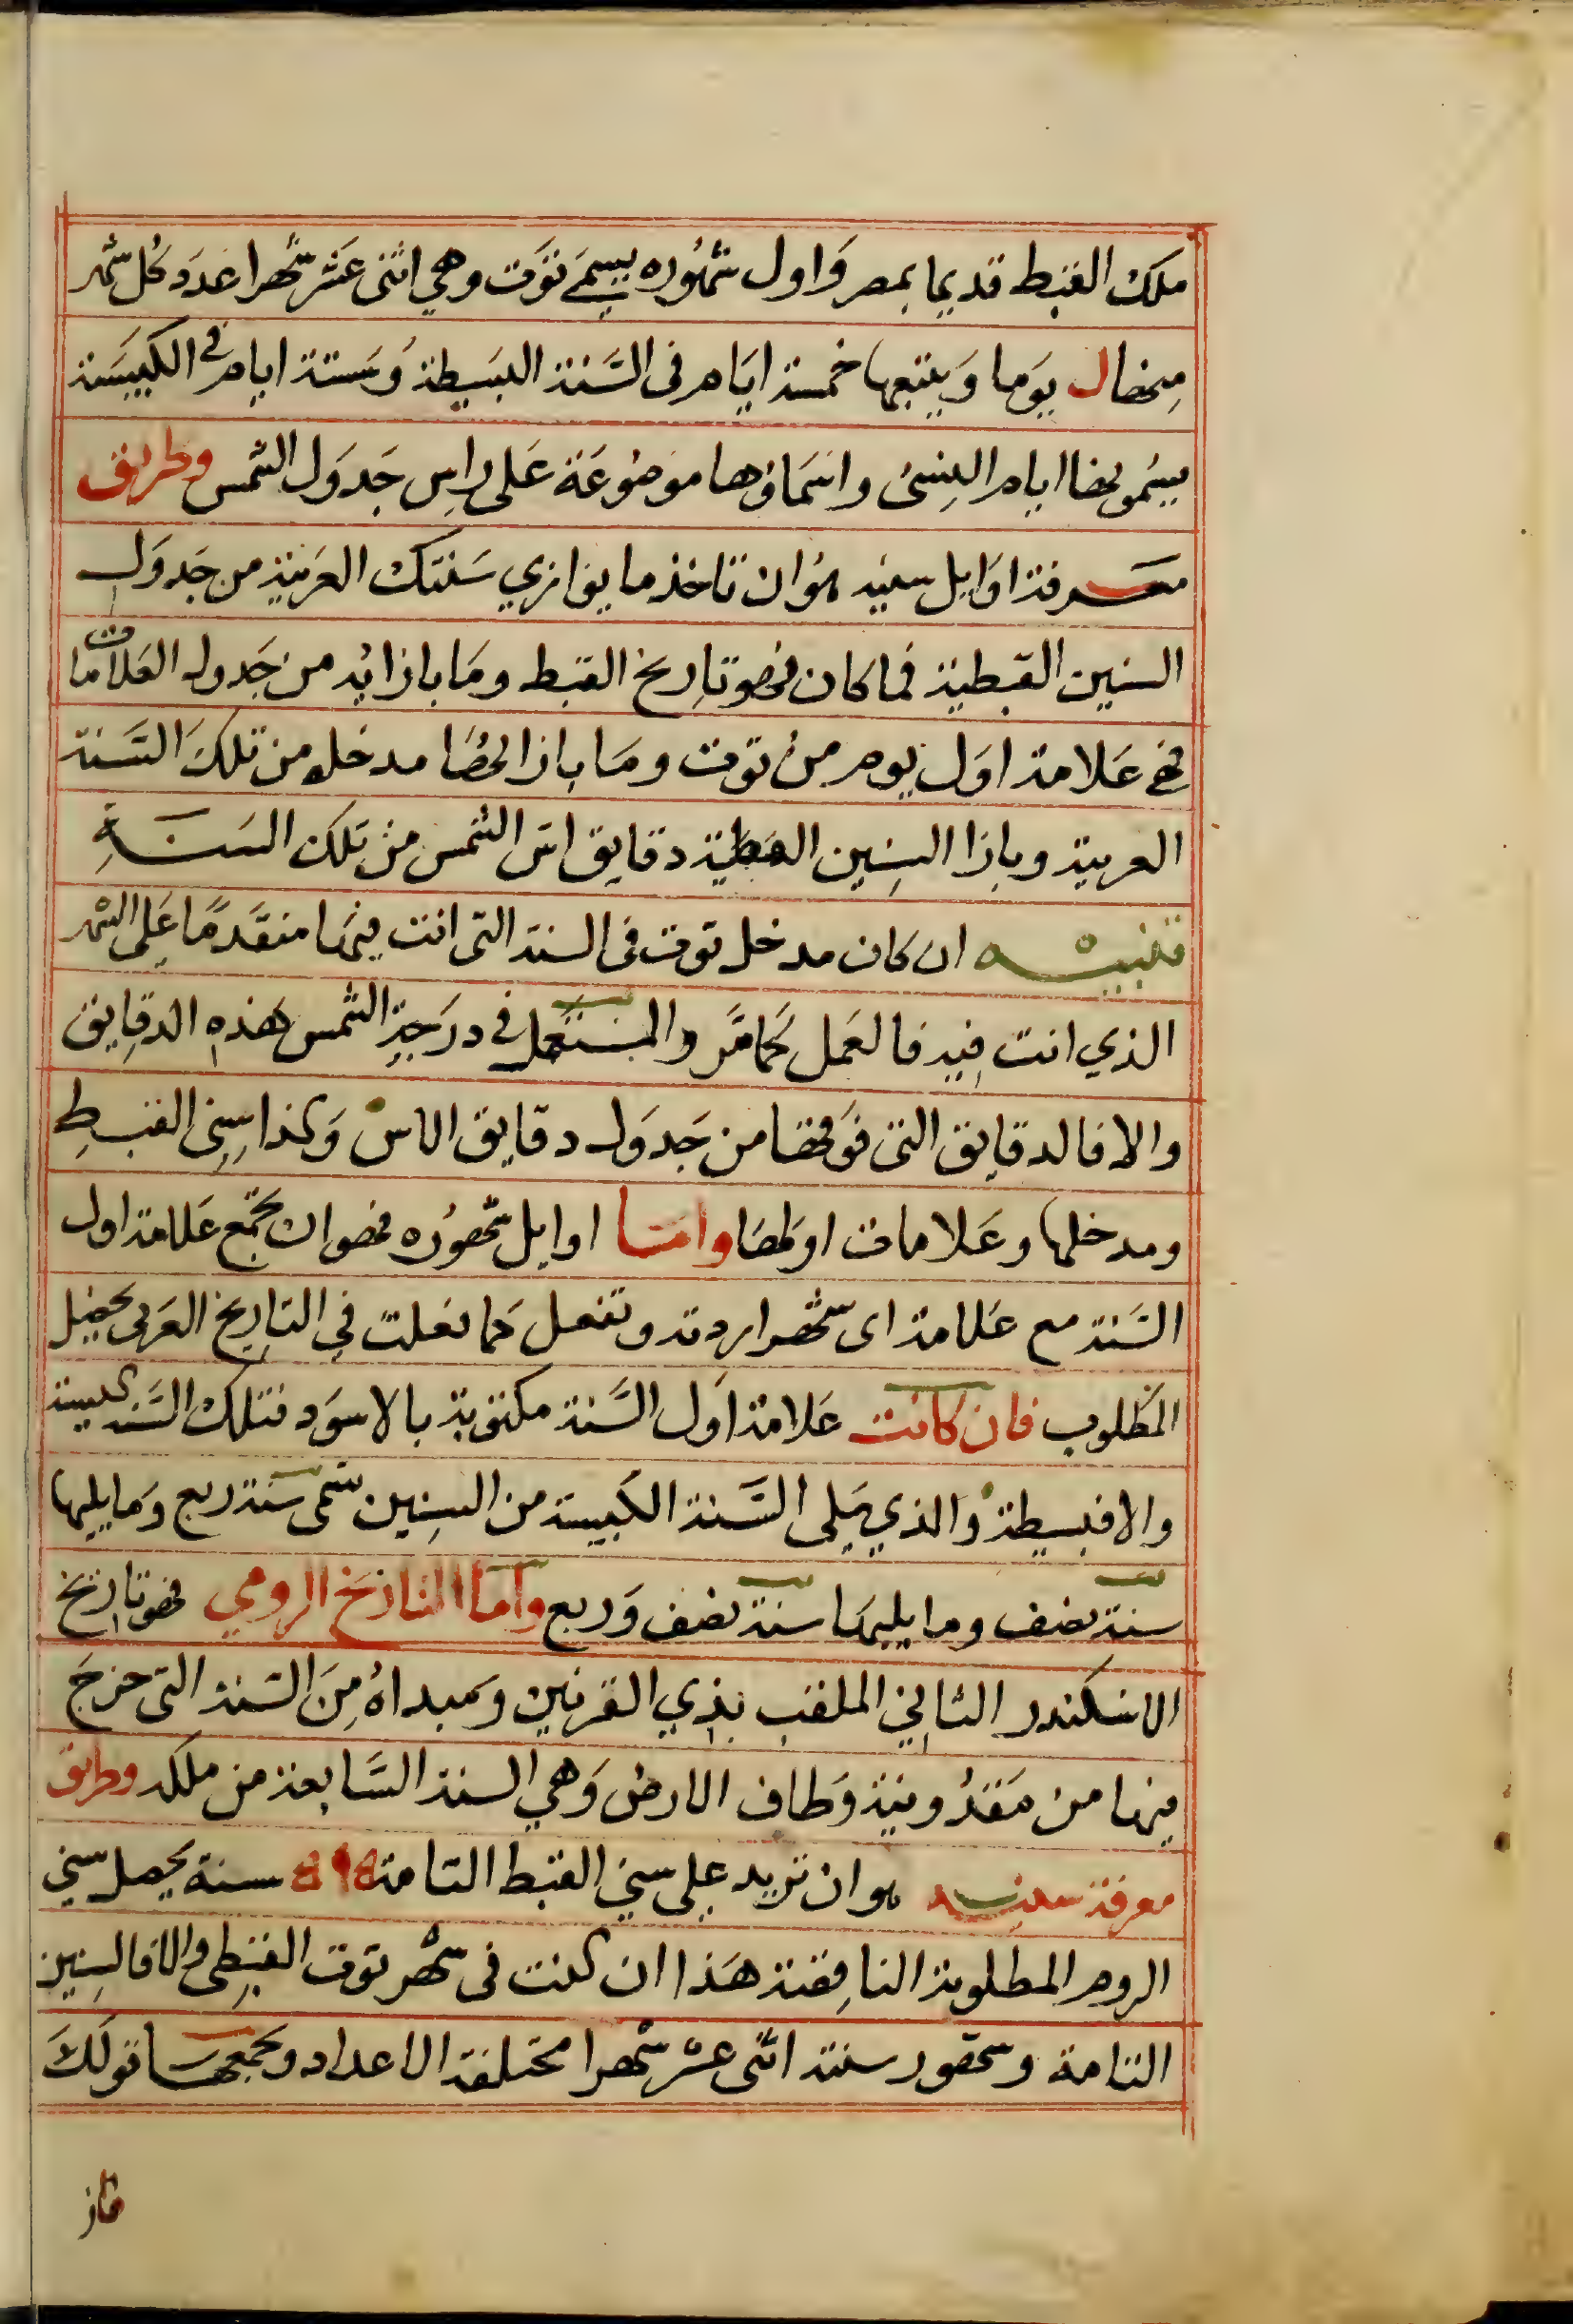 ملك القبط قديما بمصر وَاول شهوُره يسمَى توَت وهي اثنى عَشر شهرا عَدَد كل شهر
مِنها ل يوَما وَيتبعها خمسة ايَام فى السَّنة البَسيطة وَستة ايام في الكبيسَة
يسَمونها ايام النِسئ واسَماؤها موَضوُعَة عَلى راسِ جَدوَل الشمس وطريق
معرفة اوَايل سنيه هوُ ان تاخذ ما يوَازي سَنتك العَربية من جَدوَل
السنين القبطية فما كان فهو تاريخ القبط ومَا بازائه من جَدول العَلامات
فهى عَلامة اوَل يوم من توت ومَا بازائها مدخله من تلكَ السَّنة
العربية وبازا السِنِين القبطية دقايق اسّ الشمس من تلك السَنةِ
تنبيه ان كان مدخل توت فى السنة التى انت فيها متقدمًا عَلى الشهر
الذي انت فيه فالعَمل كَما مَّر والمستعمل في درَجةِ الشمس هَذه الدقايق
والا فالدقايق التى فوَقها من جَدوَل دقايق الاس وَكذا سِنِى القبطِ
ومدخلها وعَلامات اوَلها وامَا اوايل شهوُره فهو ان تجمع عَلامة اول
السَنة مع عَلامة اى شهر اردته وتفعل كما فعَلت في التاريخ العَربى يحصل
المطلوب فان كانت عَلامة اوَل السَّنة مكتوبة بالاسوَد فتلك السَّنة كبيسة
والا فبسيطة والذي يَلى السَّنة الكبيسة من السِنِين تسَمى سَنة ربع وَما يليها
سنة نصف وما يليها سنة نصف وَربع وامَا التاريخ الرومي فهو تاريخ
الاسكندر الثاني الملقب بذِي القرنين وَمبداهُ مِنَ السَنة التى خرجَ
فيها من مَقدُونية وَطاف الارض وَهي السنة السَّابعة من ملكه وطريق
معرفة سنيه هو ان تزيد على سني القبط التامة ٥٩٥ سنة يحصل سني
الروم المطلوبة الناقِصة هَذا ان كنت فى شهر توت القبِطى والا فالسِنِين
التامة وشهور سنته اثنى عشر شهرا مختلفة الاعداد وَيجمعها قولكَ
فاز